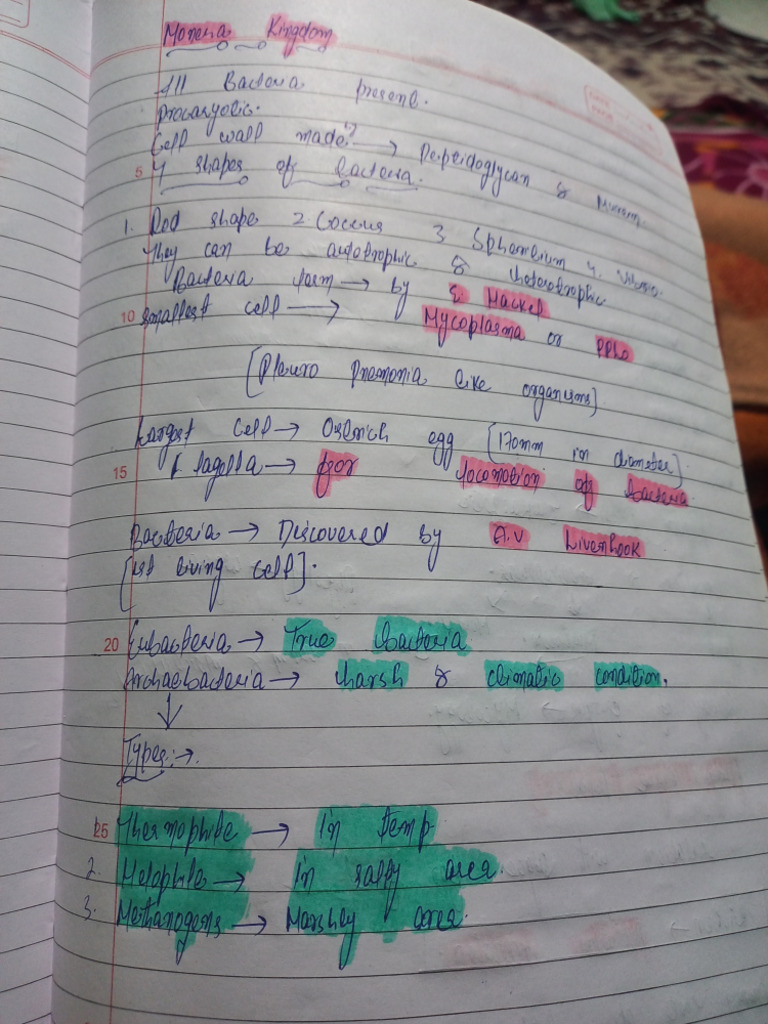 Monera Kingdom
All Bacteria present.
Procaryotic.
Cell wall made? → Peipeidoglycan &
4 shapes of bacteria.
1. Rod shape 2 Coccus 3 4.
They can be autotrophic & heterotrophic
Bacteria term → by E Hackel
Smallest cell → Mycoplasma or PPLO
[Pleuro Pnemonia like organisms]
Largest cell → Ostrich egg [170mm in diameter].
Flagella → for locomotion of bacteria
Bacteria → Discovered by A.V LivenHook
[1st living cell].
Eubacteria → True bacteria
Archaebacteria → harsh & climatic condition.
↓
Types:→.
1. Thermophile → In temp
2. Helophile → In salty area.
3. Methanogens → Marshey area.
5
10
15
20
25